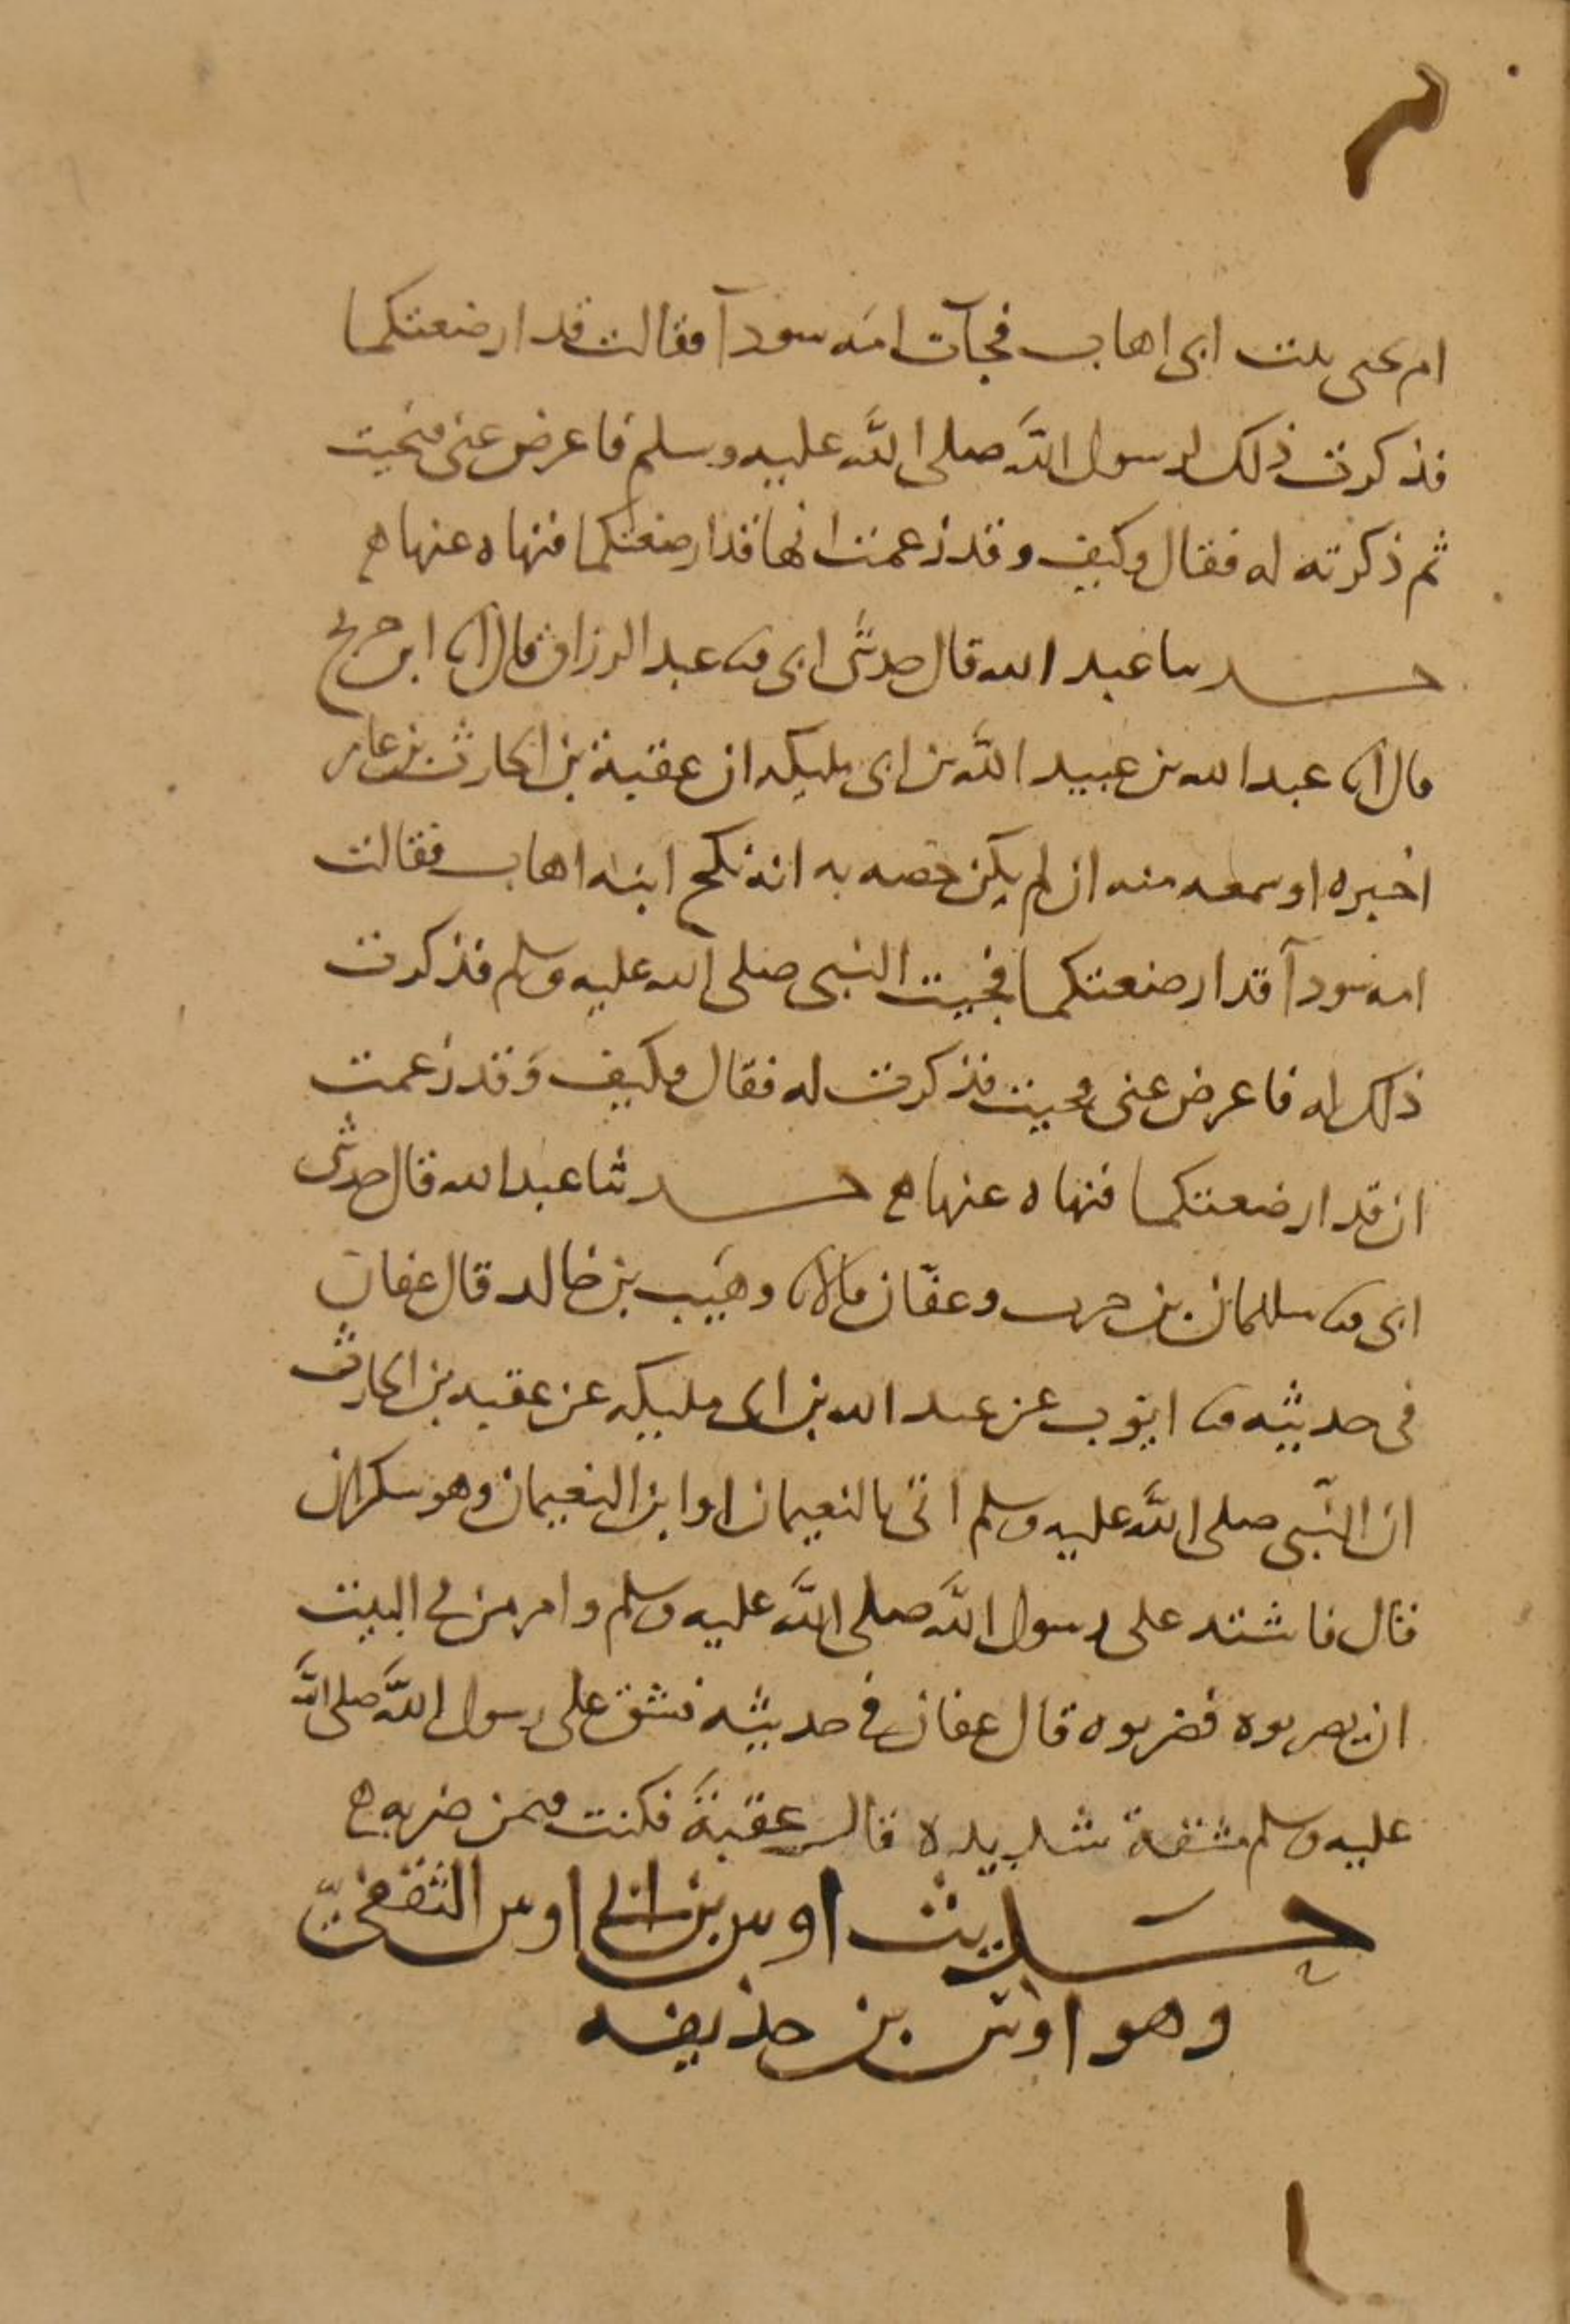 ام يحيى بنت ابى اهاب فجآت امه سودآ فقالت قد ارضعتكما
فذكرت ذلك لرسول الله صلى الله عليه وسلم فاعرض عنى فنحيت
ثم ذكرته له فقال وكيف وقد زعمت انها قد ارضعتكما فنهاه عنها ه
حدسا عبد الله قال حدثنى ابى ثنا عبد الرزاق قال انا ابن جريج
قال انا عبد الله بن عبيد الله بن ابى مليكه ان عقبة بن الحارث بن عامر
اخبره او سمعه منه ان لم يكن خصه به انه نكح ابنه اهاب فقالت
امه سودآ قد ارضعتكما فجيت النبى صلى الله عليه وسلم فذكرت
ذلك له فاعرض عنى فجيت فذكرت له فقال فكيف وقد زعمت
ان قد ارضعتكما فنهاه عنها ه حدثنا عبد الله قال حدثنى
ابى ثنا سليمان بن حرب وعفّان قالا ثنا وهيب بن خالد قال عفان
فى حديثه ثنا ايوب عن عبد الله بن ابى مليكه عن عقبه بن الحارث
ان النّبى صلى اللّه عليه وسلم اتى بالنعيمان او ابن النعيمان وهو سكران
قال فاشتد على رسول اللّه صلى اللّه عليه وسلم وامر من فى البيت
ان يضربوه فضربوه قال عفان فى حديثه فشق على رسول اللّه صلى اللّه
عليه وسلم مشقة شديده قال عقبة فكنت فيمن ضربه ه
حديث اوس بن ابى اوس الثقفىّ
وهو اوس بن حذيفه